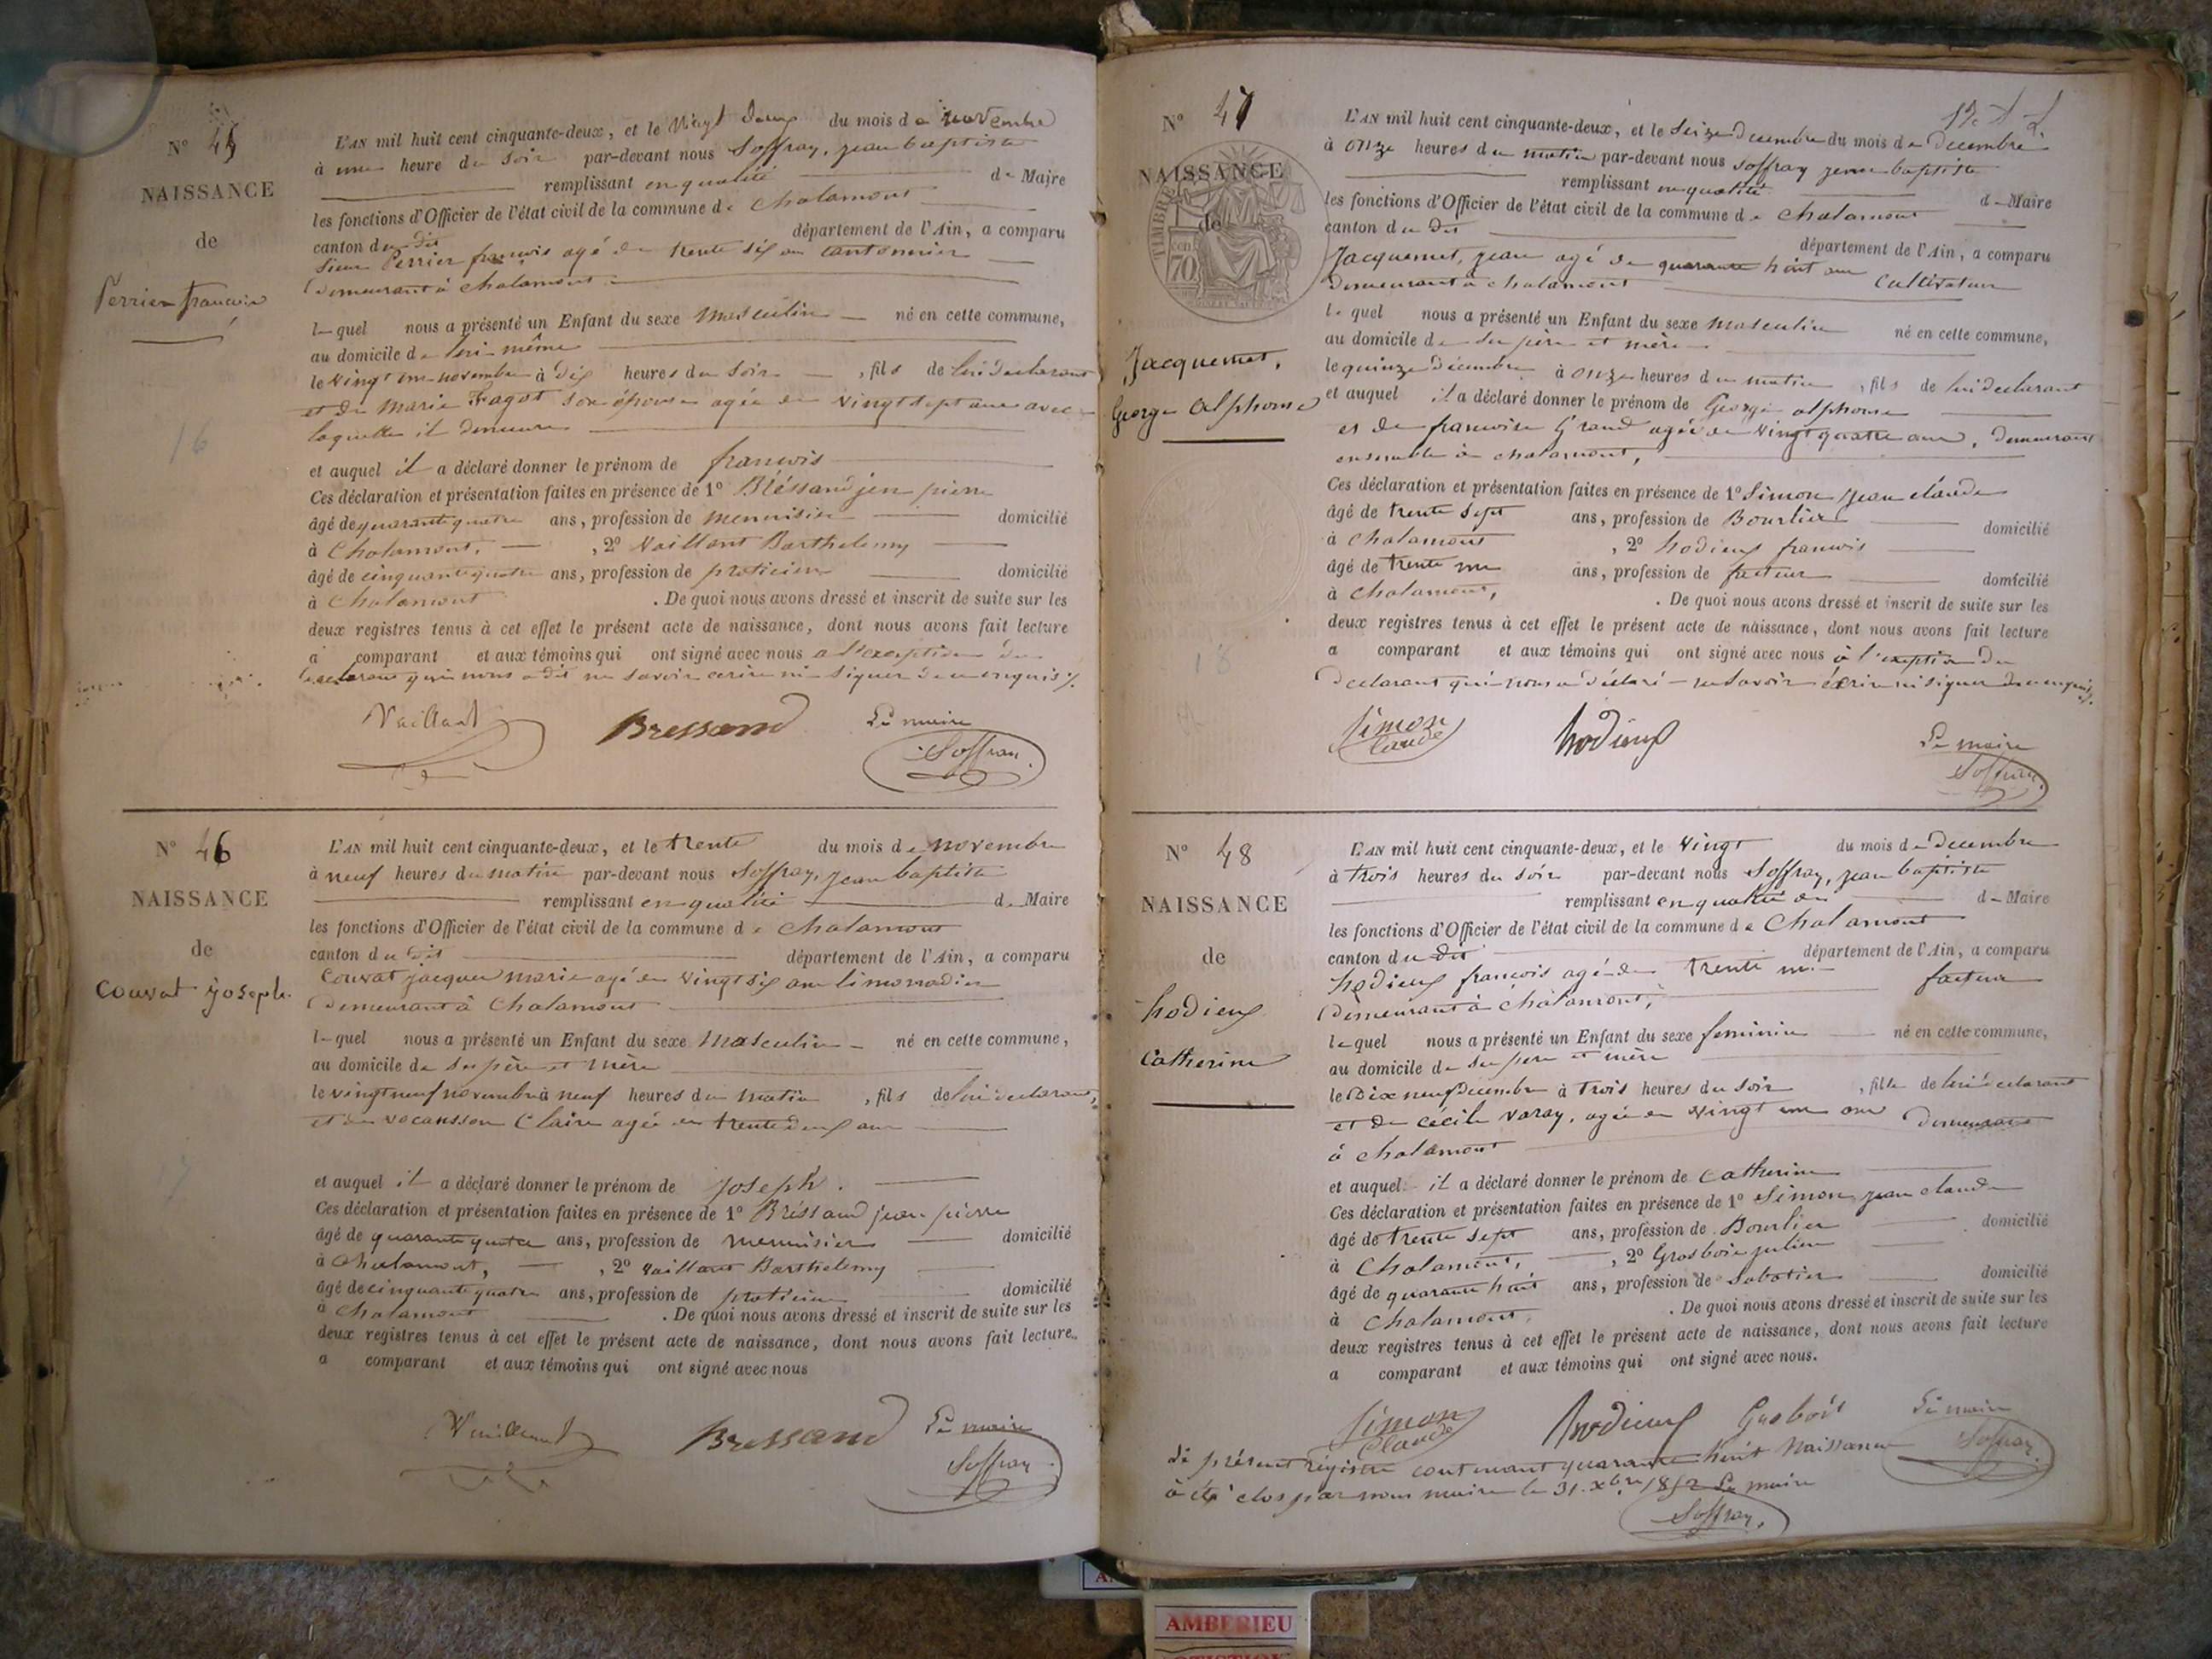 N° 45
NAISSANCE
de
Perrier francois
L'AN mil huit cent cinquante-deux, et le vingt deux du mois de novembre
à une heure du soir par-devant nous Soffray, jean baptiste
remplissant en qualité de Maire
les fonctions d'Officier de l'état civil de la commune de Chalamont
canton du dit département de l'Ain, a comparu
sieur Perrier françois agé de trente six ans cantonnier
demeurant à chalamont
lequel nous a présenté un Enfant du sexe masculin né en cette commune,
au domicile de lui-même
le vingt un novembre à dix heures du soir, fils de lui déclarant
et de marie Fagot son épouse agée de vingt sept ans avec
laquelle il demeure
et auquel il a déclaré donner le prénom de francois
Ces déclaration et présentation faites en présence de 1° Bréssand jen pierre
âgé de quarante quatre ans, profession de menuisier domicilié
à Chalamont, , 2° Vaillant Barthelemy
âgé de cinquante quatre ans, profession de praticien domicilié
à Chalamont . De quoi nous avons dressé et inscrit de suite sur les
deux registres tenus à cet effet le présent acte de naissance, dont nous avons fait lecture
a comparant et aux témoins qui ont signé avec nous a l'exception du
déclarant qui nous a dit ne savoir écrire ni signer de ce enquis ./.
Vaillant Bressand Le maire
Soffray
N° 46
NAISSANCE
de
Couvat joseph
L'AN mil huit cent cinquante-deux, et le trente du mois de novembre
à neuf heures du matin par-devant nous Soffray, jean baptiste
remplissant en qualité de Maire
les fonctions d'Officier de l'état civil de la commune de Chalamont
canton du dit département de l'Ain, a comparu
Couvat jacques marie agé de vingt six ans limonadier
demeurant à Chalamont
lequel nous a présenté un Enfant du sexe masculin né en cette commune,
au domicile de ses père et mère
le vingt neuf novembre à neuf heures du matin, fils de lui déclarant,
et de vocansson Claire agée de trente deux ans
et auquel il a déclaré donner le prénom de joseph.
Ces déclaration et présentation faites en présence de 1° Bréssand jean pierre
âgé de quarante quatre ans, profession de menuisier domicilié
à Chalamont, , 2° vaillant Barthelemy
âgé de cinquante quatre ans, profession de praticien domicilié
à Chalamont . De quoi nous avons dressé et inscrit de suite sur les
deux registres tenus à cet effet le présent acte de naissance, dont nous avons fait lecture
a comparant et aux témoins qui ont signé avec nous
Vaillant Bressand Le maire
Soffray
N° 47
NAISSANCE
de
Jacquemet,
George alphonse
L'AN mil huit cent cinquante-deux, et le seize decembre du mois de decembre
à onze heures du matin par-devant nous soffray jean baptiste
remplissant en qualité de Maire
les fonctions d'Officier de l'état civil de la commune de chalamont
canton du dit département de l'Ain, a comparu
Jacquemet, jean agé de quarante huit ans cultivateur
demeurant à chalamont
lequel nous a présenté un Enfant du sexe masculin né en cette commune,
au domicile de ses père et mère
le quinze décembre à onze heures du matin, fils de lui declarant
et auquel il a déclaré donner le prénom de George alphonse
et de francoise Grand agée de vingt quatre ans, demeurant
ensemble à chalamont,
Ces déclaration et présentation faites en présence de 1° Simon jean claude
âgé de trente sept ans, profession de Bourlier domicilié
à Chalamont , 2° hodieux francois
âgé de trente un ans, profession de facteur domicilié
à Chalamont, . De quoi nous avons dressé et inscrit de suite sur les
deux registres tenus à cet effet le présent acte de naissance, dont nous avons fait lecture
a comparant et aux témoins qui ont signé avec nous à l'exception du
declarant qui nous a déclaré ne savoir écrire ni signer de ce enquis ./.
Simon Claude hodieux Le maire
Soffray
N° 48
NAISSANCE
de
hodieux
Catherine
L'AN mil huit cent cinquante-deux, et le vingt du mois de decembre
à trois heures du soir par-devant nous Soffray, jean baptiste
remplissant en qualité de de Maire
les fonctions d'Officier de l'état civil de la commune de Chalamont
canton du dit département de l'Ain, a comparu
hodieux francois agé de trente un facteur
demeurant à chalamont,
lequel nous a présenté un Enfant du sexe feminin né en cette commune,
au domicile de ses pere et mère
le dix neuf decembre à trois heures du soir, fille de lui déclarant
et de cécile varay, agée de vingt un ans demeurant
à chalamont
et auquel il a déclaré donner le prénom de Catherine
Ces déclaration et présentation faites en présence de 1° Simon jean claude
âgé de trente sept ans, profession de Bourlier domicilié
à Chalamont, , 2° Grosbois julien
âgé de quarante huit ans, profession de Sabotier domicilié
à Chalamont, . De quoi nous avons dressé et inscrit de suite sur les
deux registres tenus à cet effet le présent acte de naissance, dont nous avons fait lecture
a comparant et aux témoins qui ont signé avec nous.
Simon Claude hodieux Grosbois Le maire
Soffray
Le présent régistre contenant quarante huit Naissance
à été clos par nous maire le 31. xbre 1852 Le maire
Soffray.
AMBERIEU